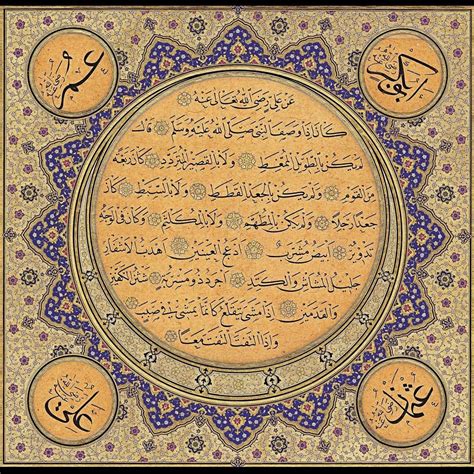 أبو بكر
عمر
عن علي رضي الله تعالى عنه
كان اذا وصف النبي صلى الله عليه وسلم قال
لم يكن بالطويل الممغط ولا بالقصير المتردد وكان ربعة
من القوم ولم يكن بالجعد القطط ولا بالسبط كان
جعدا رجلا ولم يكن بالمطهم ولا بالمكلثم وكان في الوجه
تدوير ابيض مشرب ادعج العينين اهدب الاشفار
جليل المشاش والكتد اجرد ذو مسربة شثن الكفين
والقدمين اذا مشى يتقلع كانما يمشي في صبب
واذا التفت التفت معا
عثمان
علي